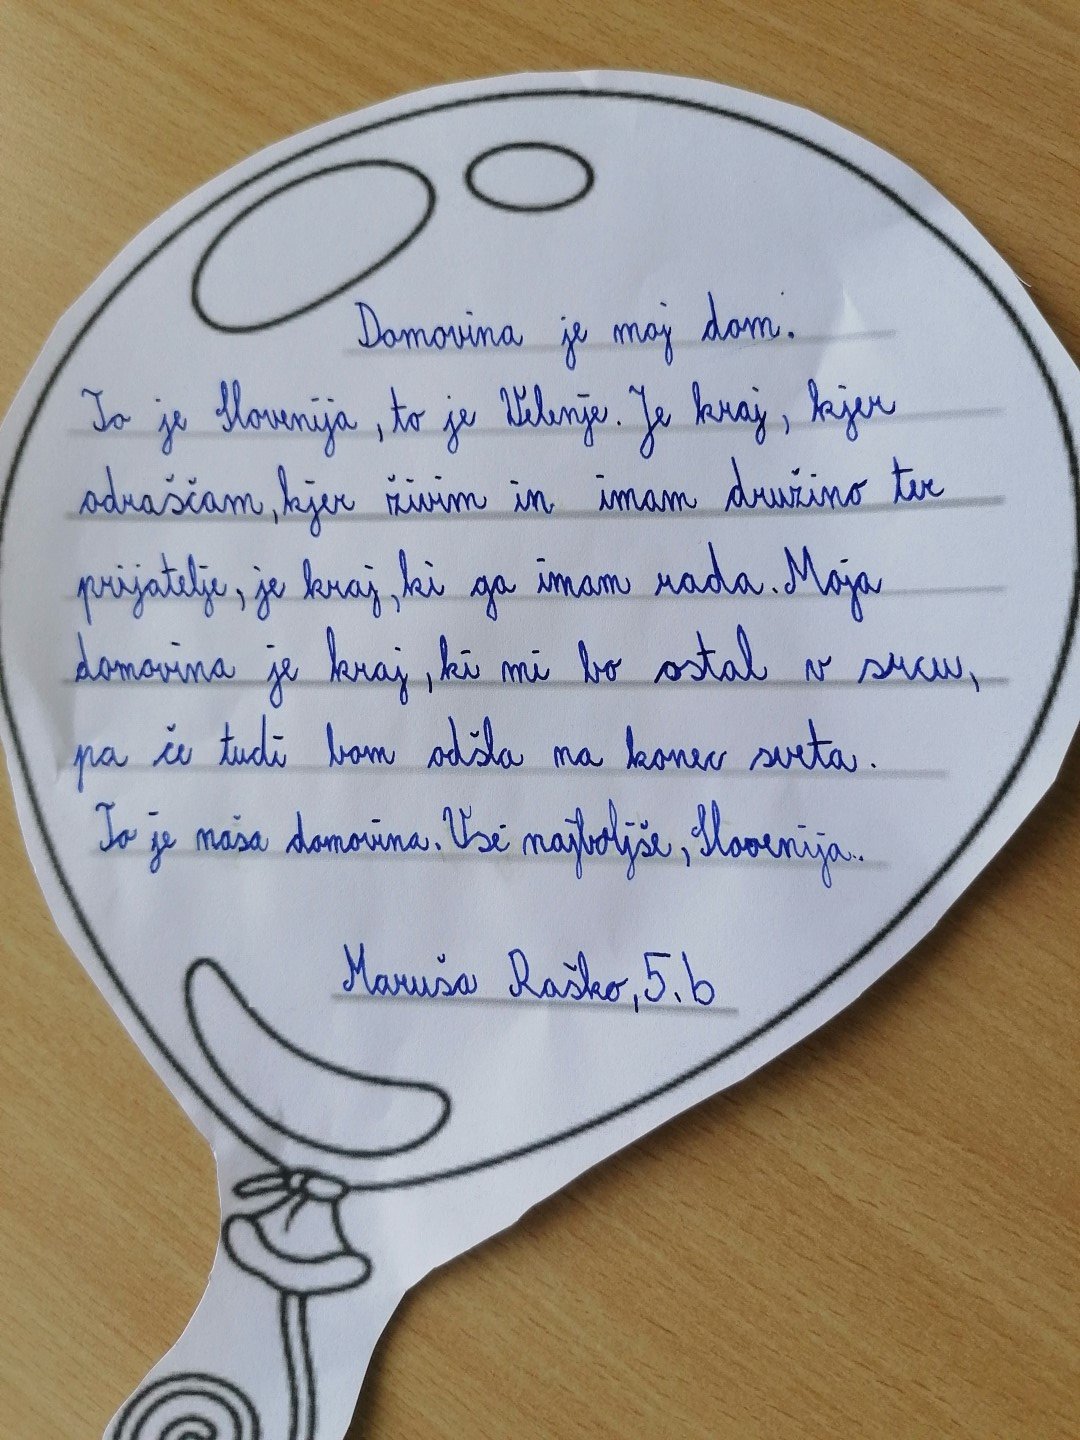 Domovina je moj dom.
To je Slovenija, to je Velenje. Je kraj, kjer
odraščam, kjer živim in imam družino ter
prijatelje, je kraj, ki ga imam rada. Moja
domovina je kraj, ki mi bo ostal v srcu,
pa če tudi bom odšla na konec sveta.
To je naša domovina. Vse najboljše, Slovenija.
Maruša Raško, 5. b